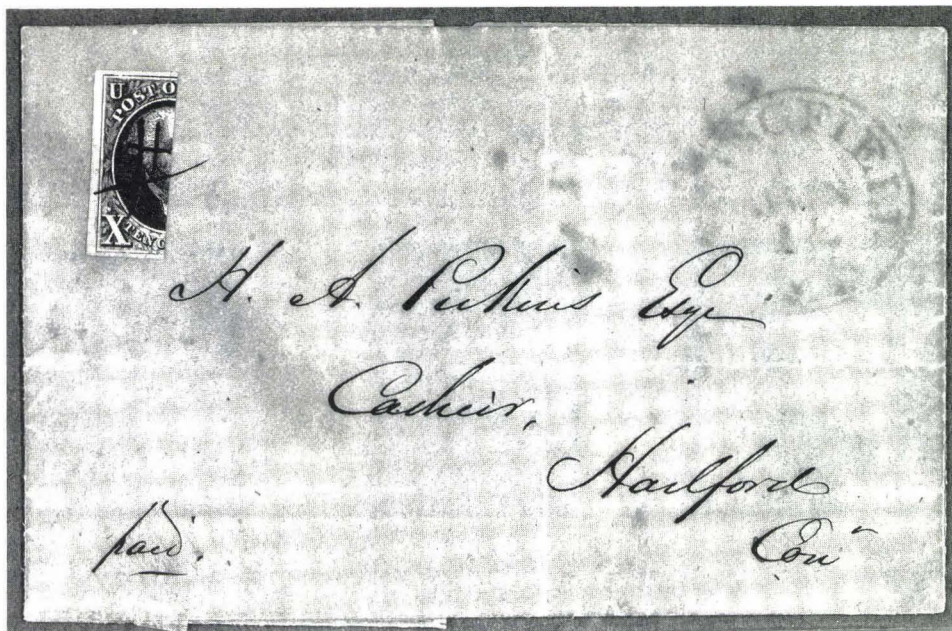 U
POST O
X
TEN C
H. A. Perkins Esqr
Casheir,
Hartford
Con
paid.